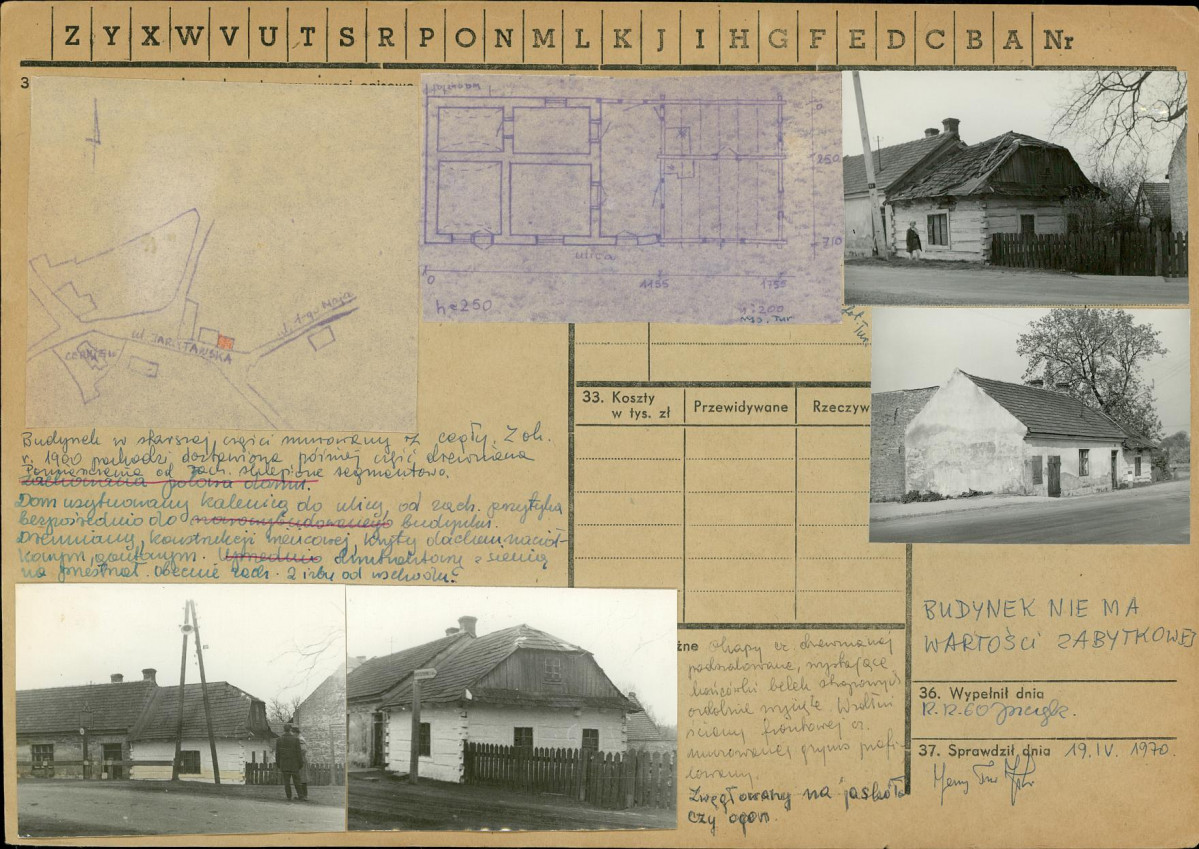 Z Y X W V U T S R P O N M L K J I H G F E D C B A Nr
3
ul. TARTAŃSKA
ul. 1-go Maja
CERKIEW
ulica
0
250
710
0
1155
1755
h=250
1:200
33. Koszty
w tys. zł
Przewidywane
Rzeczyw
Budynek w starszej części murowany z cegły. Z ok.
r. 1900 pochodzi dostawiona później część drewniana
Pomieszczenia od zach. sklepione segmentowo.
zachodnia połowa domu.
Dom usytuowany kalenicą do ulicy, od zach. przytyka
bezpośrednio do budynku.
Drewniany, konstrukcji wieńcowej, kryty dachem naczół-
kowym, gontowym. z sienią
na przestrzał. obecnie zach. 2 izby od wschodu.
żne Okapy cz. drewnianej
podsalowane, wystające
końcówki belek stropowych
ozdobnie wycięte. Wzdłuż
ściany frontowej cz.
murowanej gzyms profi-
lowany.
Zwęgłowany na jaskół
czy ogon
BUDYNEK NIE MA
WARTOŚCI ZABYTKOWEJ
36. Wypełnił dnia
37. Sprawdził dnia 19.IV. 1970.